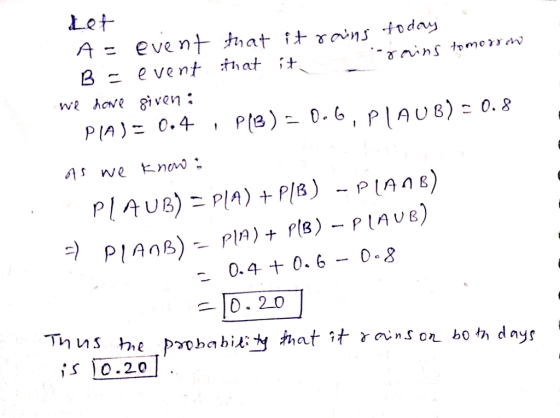 Let
A = event that it rains today
B = event that it rains tomorrow
we have given:
P(A) = 0.4 , P(B) = 0.6, P(AUB) = 0.8
As we know:
P(AUB) = P(A) + P(B) - P(A∩B)
⇒ P(A∩B) = P(A) + P(B) - P(AUB)
= 0.4 + 0.6 - 0.8
= 0.20
Thus the probability that it rains on both days
is 0.20.